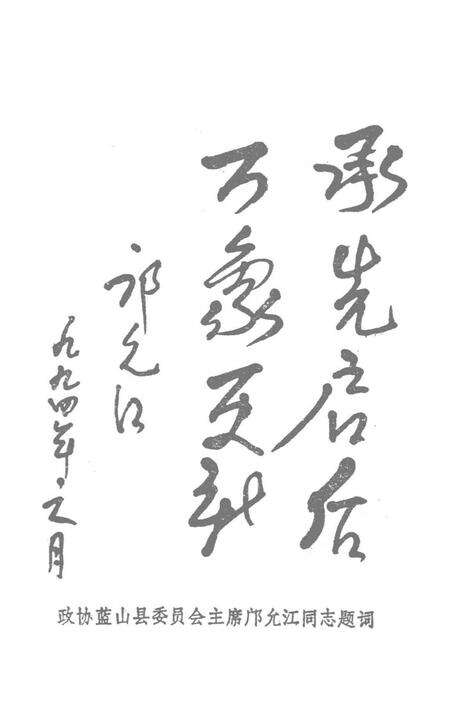 承先启后
万象更新
邝允江
一九九四年元月
政协蓝山县委员会主席邝允江同志题词